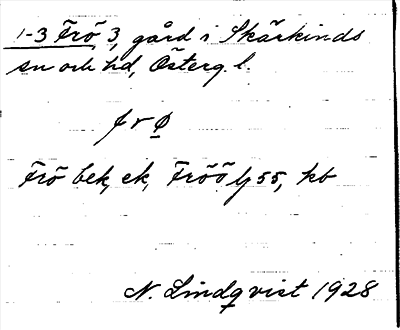 1-3 Frö, 3, gård i Skärkinds
sn och hd, Österg. l.
f r ø
Frö bek, ek, Fröö 55, kb
N. Lindqvist 1928